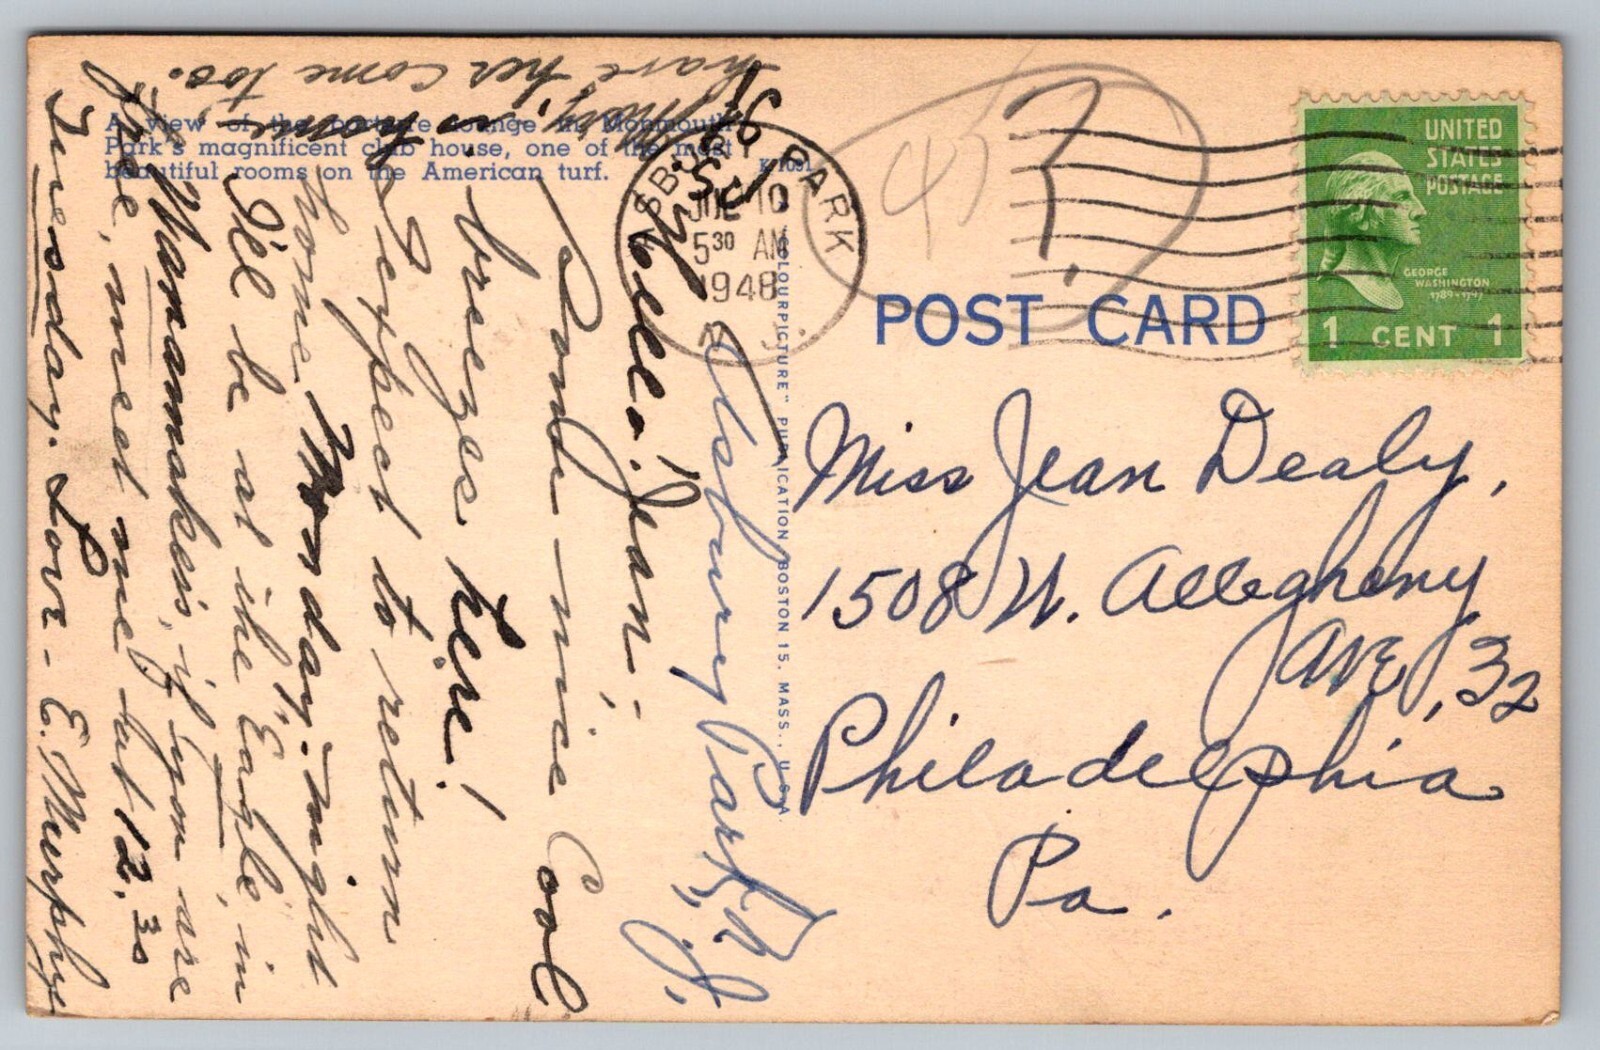 A view of the porture lounge in Monmouth
Park's magnificent club house, one of the most
beautiful rooms on the American turf.
K 1091
ASBURY PARK
JUL 10
5 30 AM
1948
N. J.
45
?
UNITED
STATES
POSTAGE
GEORGE
WASHINGTON
1789-1797
1 CENT 1
POST CARD
"COLOURPICTURE" PUBLICATION BOSTON 15, MASS., U.S.A.
Miss Jean Dealy,
1508 W. Allegheny
Ave, 32
Philadelphia
Pa.
Asbury Park, N.J.
Hello Jean:-
Some nice Cool
brezes here!
I expect to return
home Monday-night
I'll be at the "Eagle" in
Wanamakers, if you are
free, meet me but 12.30
Tuesday. Love - E. Murphy
is home
have her come too.